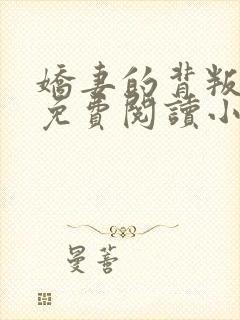 嬌妻的背叛
免費閱讀小
曼蓉